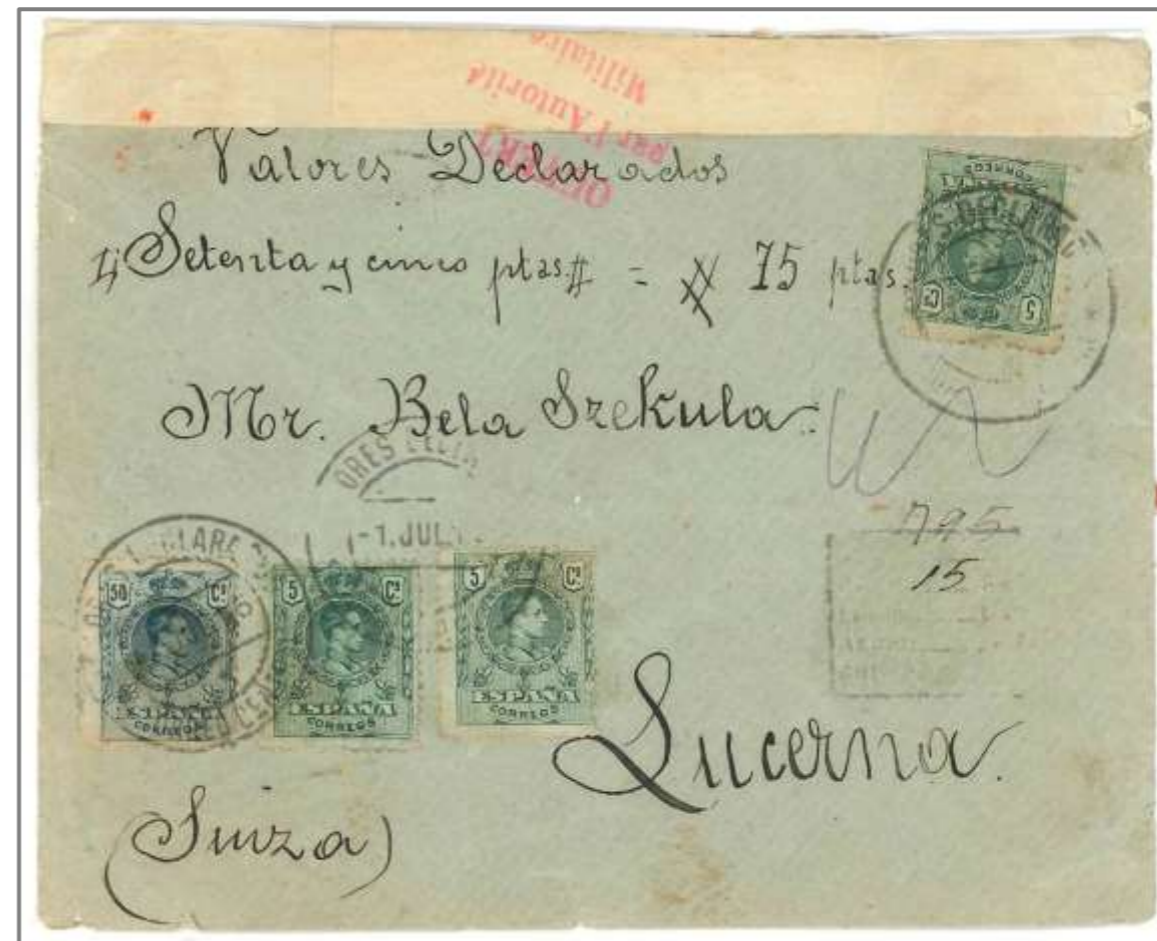 Militaire
par l'Autorité
OUVERT
Valores Declarados
Setenta y cinco ptas # = 75 ptas.
CORREOS
5 Cs
Mr. Bela Szekula
-1.JUL
795
15
50 Cs
ESPAÑA
CORREOS
5 Cs
ESPAÑA
CORREOS
5 Cs
ESPAÑA
CORREOS
Lucerna.
(Suiza)